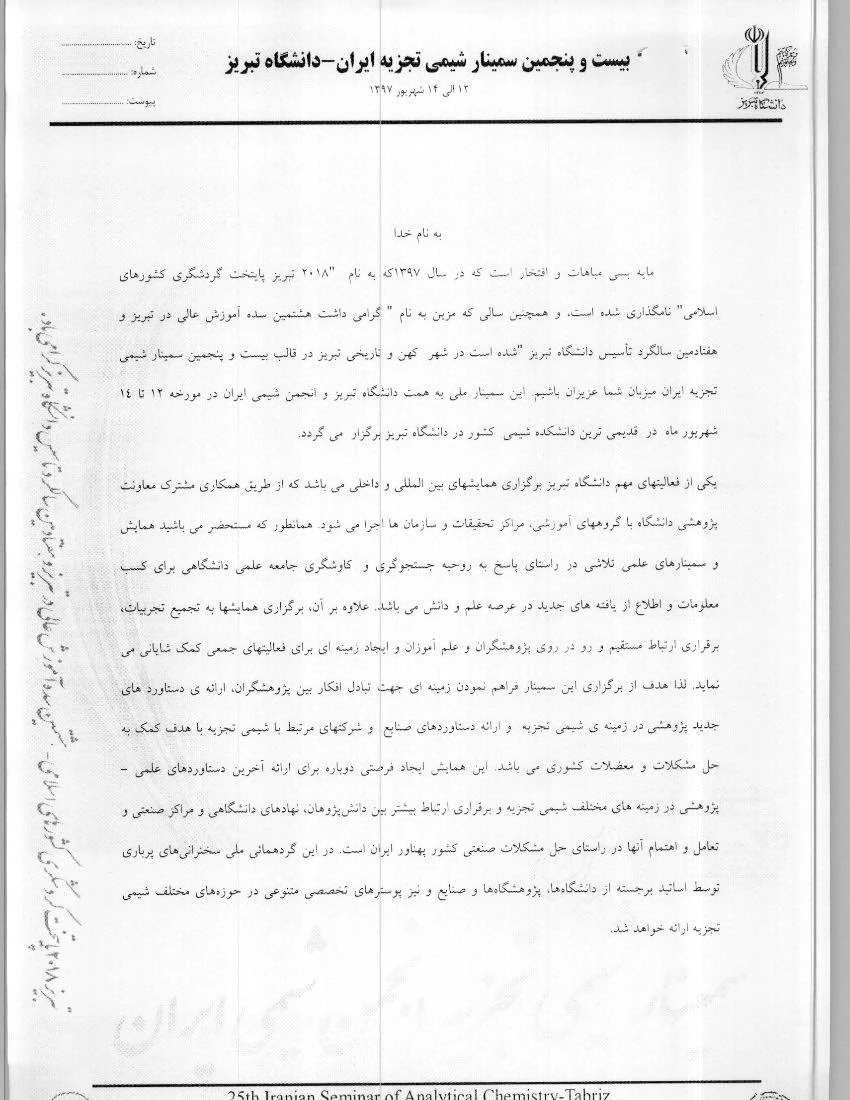 بیست و پنجمین سمینار شیمی تجزیه ایران-دانشگاه تبریز
۱۲ الی ۱۴ شهریور ۱۳۹۷
تاریخ: ........................
شماره: ........................
پیوست: ........................
دانشگاه تبریز
به نام خدا
مایه بسی مباهات و افتخار است که در سال ۱۳۹۷که به نام "۲۰۱۸ تبریز پایتخت گردشگری کشورهای
اسلامی" نامگذاری شده است، و همچنین سالی که مزین به نام " گرامی داشت هشتمین سده آموزش عالی در تبریز و
هفتادمین سالگرد تأسیس دانشگاه تبریز "شده است در شهر کهن و تاریخی تبریز در قالب بیست و پنجمین سمینار شیمی
تجزیه ایران میزبان شما عزیزان باشیم. این سمینار ملی به همت دانشگاه تبریز و انجمن شیمی ایران در مورخه ۱۲ تا ۱٤
شهریور ماه در قدیمی ترین دانشکده شیمی کشور در دانشگاه تبریز برگزار می گردد.
یکی از فعالیتهای مهم دانشگاه تبریز برگزاری همایشهای بین المللی و داخلی می باشد که از طریق همکاری مشترک معاونت
پژوهشی دانشگاه با گروههای آموزشی، مراکز تحقیقات و سازمان ها اجرا می شود. همانطور که مستحضر می باشید همایش
و سمینارهای علمی تلاشی در راستای پاسخ به روحیه جستجوگری و کاوشگری جامعه علمی دانشگاهی برای کسب
معلومات و اطلاع از یافته های جدید در عرصه علم و دانش می باشد. علاوه بر آن، برگزاری همایشها به تجمیع تجربیات،
برقراری ارتباط مستقیم و رو در روی پژوهشگران و علم آموزان و ایجاد زمینه ای برای فعالیتهای جمعی کمک شایانی می
نماید. لذا هدف از برگزاری این سمینار فراهم نمودن زمینه ای جهت تبادل افکار بین پژوهشگران، ارائه ی دستاورد های
جدید پژوهشی در زمینه ی شیمی تجزیه و ارائه دستاوردهای صنایع و شرکتهای مرتبط با شیمی تجزیه با هدف کمک به
حل مشکلات و معضلات کشوری می باشد. این همایش ایجاد فرصتی دوباره برای ارائه آخرین دستاوردهای علمی -
پژوهشی در زمینه های مختلف شیمی تجزیه و برقراری ارتباط بیشتر بین دانش‌پژوهان، نهادهای دانشگاهی و مراکز صنعتی و
تعامل و اهتمام آنها در راستای حل مشکلات صنعتی کشور پهناور ایران است. در این گردهمائی ملی سخنرانی‌های پرباری
توسط اساتید برجسته از دانشگاه‌ها، پژوهشگاه‌ها و صنایع و نیز پوسترهای تخصصی متنوعی در حوزه‌های مختلف شیمی
تجزیه ارائه خواهد شد.
تبریز ۲۰۱۸ پایتخت گردشگری کشورهای اسلامی - هشتمین سده آموزش عالی در تبریز و هفتادمین سالگرد تأسیس دانشگاه تبریز گرامی باد.
25th Iranian Seminar of Analytical Chemistry-Tabriz